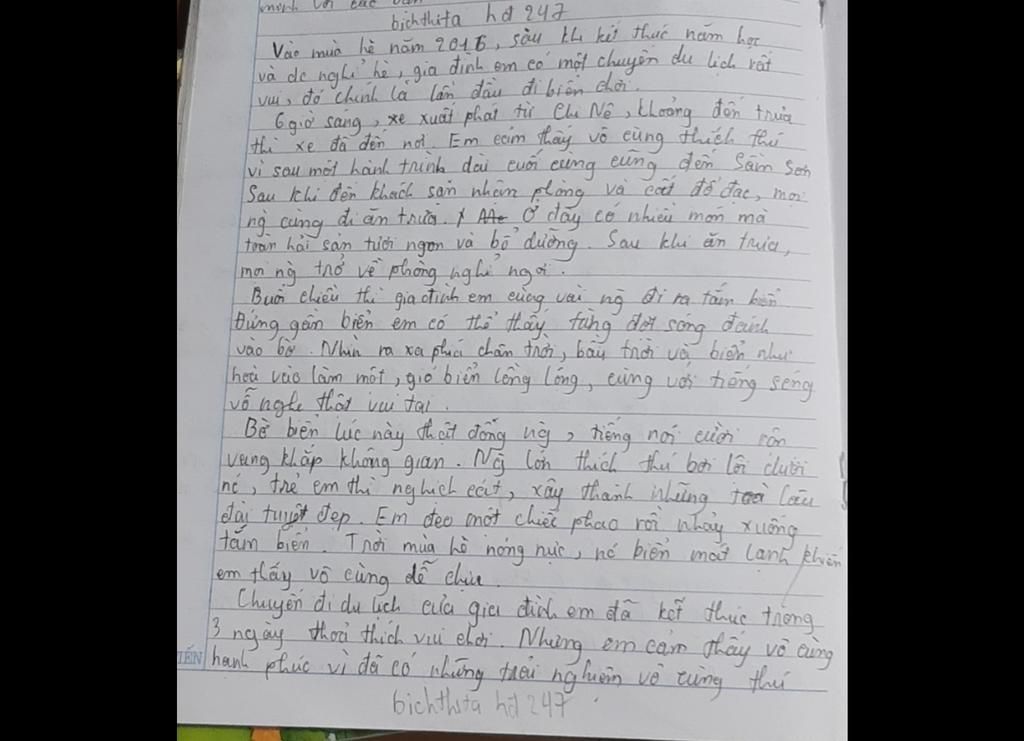 mình với các bạn
bichthita hd 247
Vào mùa hè năm 2016, sau khi kết thúc năm học
và dc nghỉ hè, gia đình em có một chuyến du lịch rất
vui, đó chính là lần đầu đi biển chơi.
6 giờ sáng, xe xuất phát từ Chi Nê, khoảng đến trưa
thì xe đã đến nơi. Em cảm thấy vô cùng thích thú
vì sau một hành trình dài cuối cùng cũng đến Sầm Sơn
Sau khi đến khách sạn nhận phòng và cất đồ đạc, mọi
ng cùng đi ăn trưa. Ở đây có nhiều món mà
toàn hải sản tươi ngon và bổ dưỡng. Sau khi ăn trưa,
mọi ng trở về phòng nghỉ ngơi.
Buổi chiều thì gia đình em cùng vài ng đi ra tắm biển
Đứng gần biển em có thể thấy từng đợt sóng đánh
vào bờ. Nhìn ra xa phía chân trời, bầu trời và biển như
hoà vào làm một, gió biển lồng lộng, cùng với tiếng sóng
vỗ nghe thật vui tai.
Bờ biển lúc này thật đông ng, tiếng nói cười rộn
vang khắp không gian. Ng lớn thích thú bơi lội dưới
nc, trẻ em thì nghịch cát, xây thành những toà lâu
đài tuyệt đẹp. Em đeo một chiếc phao rồi nhảy xuống
tắm biển. Trời mùa hè nóng nực, nc biển mát lạnh khiến
em thấy vô cùng dễ chịu.
Chuyến đi du lịch của gia đình em đã kết thúc trong
3 ngày thoả thích vui chơi. Nhưng em cảm thấy vô cùng
TIẾN hạnh phúc vì đã có những trải nghiệm vô cùng thú
bichthita hd 247